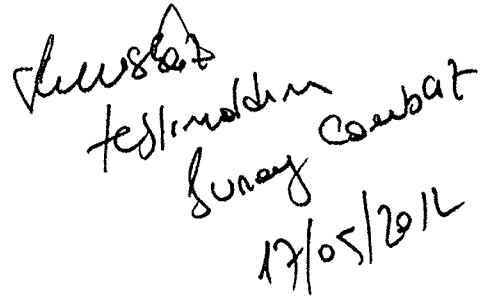 teslim aldım
Sunay Canbat
17/05/2012